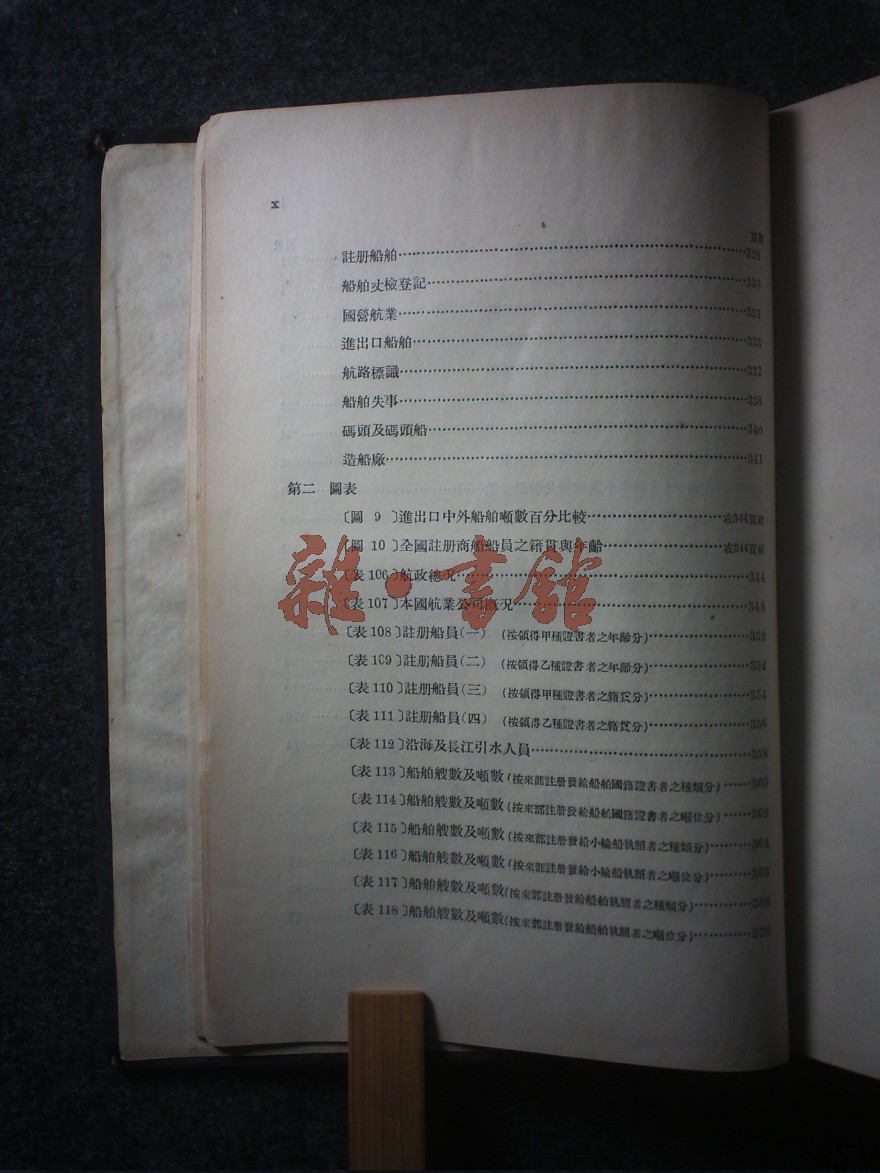 x
頁數
註册船舶…………328
船舶丈檢登記…………330
國營航業…………331
進出口船舶…………335
航路標識…………337
船舶失事…………338
碼頭及碼頭船…………340
造船廠…………341
第二 圖表
〔圖 9 〕進出口中外船舶噸數百分比較…………在344頁前
〔圖 10〕全國註册商船船員之籍貫與年齡…………在344頁前
〔表106〕航政總況…………344
〔表107〕本國航業公司概況…………348
〔表108〕註册船員(一) (按領得甲種證書者之年齡分)…………352
〔表109〕註册船員(二) (按領得乙種證書者之年齡分)…………352
〔表110〕註册船員(三) (按領得甲種證書者之籍貫分)…………354
〔表111〕註册船員(四) (按領得乙種證書者之籍貫分)…………356
〔表112〕沿海及長江引水人員…………358
〔表113〕船舶艘數及噸數(按來部註册發給船舶國籍證書者之種類分)……360
〔表114〕船舶艘數及噸數(按來部註册發給船舶國籍證書者之噸位分)……362
〔表115〕船舶艘數及噸數(按來部註册發給小輪船執照者之種類分)……364
〔表116〕船舶艘數及噸數(按來部註册發給小輪船執照者之噸位分)……366
〔表117〕船舶艘數及噸數(按來部註册發給船舶執照者之種類分)……368
〔表118〕船舶艘數及噸數(按來部註册發給船舶執照者之噸位分)……370
雜·書館